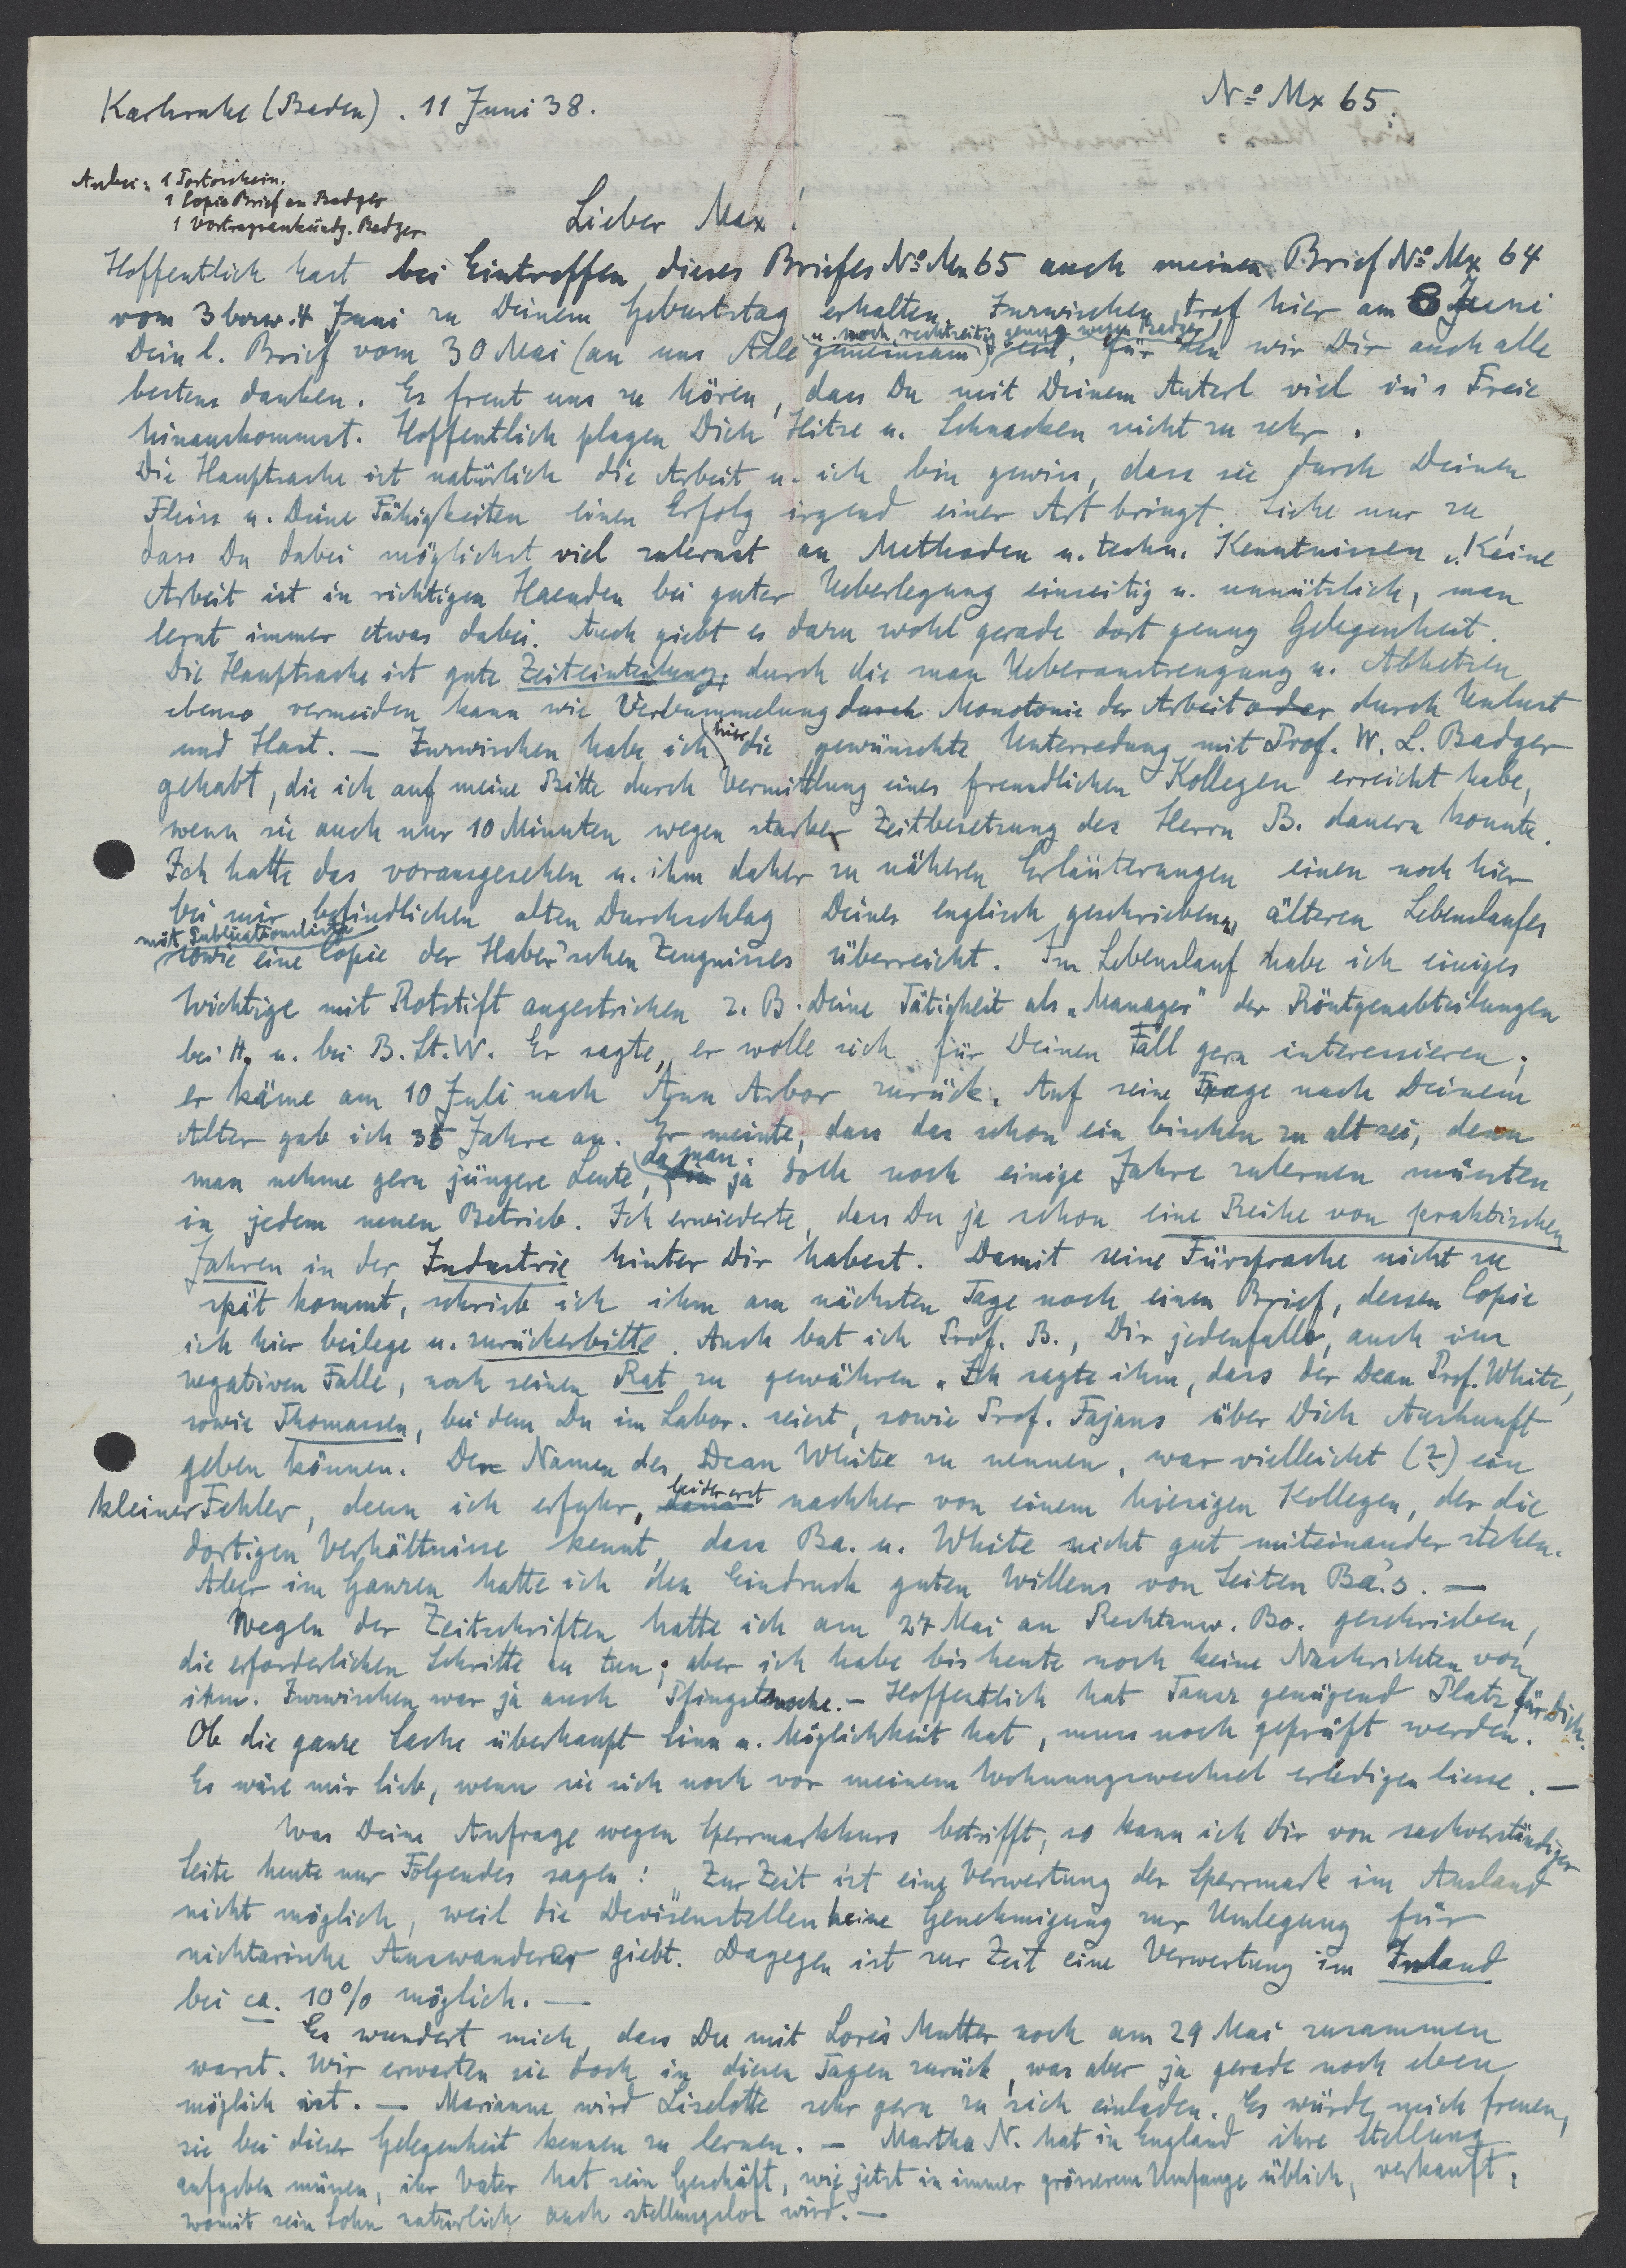 Karlsruhe (Baden). 11 Juni 38.
Nº Mx 65.
Anbei: 1 Portoschein.
1 Copie Brief an Badger
1 Vortragsankündg. Badger
Lieber Max!
Hoffentlich hast bei Eintreffen dieses Briefes Nº Mx 65 auch meinen Brief Nº Mx 64
vom 3 bezw. 4 Juni zu Deinem Geburtstag erhalten. Inzwischen traf hier am 8 Juni
u. noch rechtzeitig genug wegen Badger
Dein l. Brief vom 30 Mai (an uns Alle gemeinsam) ein, für den wir Dir auch alle
bestens danken. Es freut uns zu hören, dass Du mit Deinem Auterl viel in's Freie
hinauskommst. Hoffentlich plagen Dich Hitze u. Schnacken nicht zu sehr.
Die Hauptsache ist natürlich die Arbeit u. ich bin gewiss, dass sie durch Deinen
Fleiss u. Deine Fähigkeiten einen Erfolg irgend einer Art bringt. Siehe nur zu,
dass Du dabei möglichst viel zulernst an Methoden u. techn. Kenntnissen! Keine
Arbeit ist in richtigen Haenden bei guter Ueberlegung einseitig u. unnützlich, man
lernt immer etwas dabei. Auch giebt es dazu wohl gerade dort genug Gelegenheit.
Die Hauptsache ist gute Zeiteinteilung, durch die man Ueberanstrengung u. Abhetzen
ebenso vermeiden kann wie Verbummelung durch Monotonie der Arbeit oder durch Unlust
und Hast. — Inzwischen habe ich hier die gewünschte Unterredung mit Prof. W. L. Badger
gehabt, die ich auf meine Bitte durch Vermittlung eines freundlichen Kollegen erreicht habe,
wenn sie auch nur 10 Minuten wegen starker Zeitbesetzung des Herrn B. dauern konnte.
Ich hatte das vorausgesehen u. ihm daher zu näheren Erläuterungen einen noch hier
bei mir befindlichen alten Durchschlag Deines englisch geschriebenen älteren Lebenslaufes
mit Publicationsliste
sowie eine Copie des Haber'schen Zeugnisses überreicht. Im Lebenslauf habe ich einiges
Wichtige mit Rotstift angestrichen z. B. Deine Tätigkeit als „Manager" der Röntgenabteilungen
bei H. u. bei B. St. W. Er sagte, er wolle sich für Deinen Fall gern interessieren;
er käme am 10 Juli nach Ann Arbor zurück. Auf seine Frage nach Deinem
Alter gab ich 35 Jahre an. Er meinte, dass das schon ein bischen zu alt sei, denn
man nehme gern jüngere Leute, da man ja doch noch einige Jahre zulernen müssten
in jedem neuen Betrieb. Ich erwiederte, dass Du ja schon eine Reihe von praktischen
Jahren in der Industrie hinter Dir habest. Damit seine Fürsprache nicht zu
spät kommt, schrieb ich ihm am nächsten Tage noch einen Brief, dessen Copie
ich hier beilege u. zurückerbitte. Auch bat ich Prof. B., Dir jedenfalls, auch im
negativen Falle, noch seinen Rat zu gewähren. Ich sagte ihm, dass der Dean Prof. White,
sowie Thomassen, bei dem Du im Labor. seiest, sowie Prof. Fajans über Dich Auskunft
geben können. Den Namen des Dean White zu nennen, war vielleicht (?) ein
kleiner Fehler, denn ich erfuhr, leider erst nachher von einem hiesigen Kollegen, der die
dortigen Verhältnisse kennt, dass Ba. u. White nicht gut miteinander stehen.
Aber im Ganzen hatte ich den Eindruck guten Willens von Seiten Ba.'s. —
Wegen der Zeitschriften hatte ich am 27 Mai an Rechtsanw. Bo. geschrieben,
die erforderlichen Schritte zu tun; aber ich habe bis heute noch keine Nachrichten von
ihm. Inzwischen war ja auch Pfingstwoche. — Hoffentlich hat Tausz genügend Platz für Dich.
Ob die ganze Sache überhaupt Sinn u. Möglichkeit hat, muss noch geprüft werden.
Es wäre mir lieb, wenn sie sich noch vor meinem Wohnungswechsel erledigen liesse. —
Was Deine Anfrage wegen Sperrmarkkurs betrifft, so kann ich Dir von sachverständiger
Seite heute nur Folgendes sagen: „Zur Zeit ist eine Verwertung der Sperrmark im Ausland
nicht möglich, weil die Devisenstellen keine Genehmigung zur Umlegung für
nichtarische Auswanderer giebt. Dagegen ist zur Zeit eine Verwertung im Inland
bei ca. 10% möglich. —
Es wundert mich, dass Du mit Lore's Mutter noch am 29 Mai zusammen
warst. Wir erwarten sie doch in diesen Tagen zurück, was aber ja gerade noch eben
möglich ist. — Marianne wird Liselotte sehr gern zu sich einladen. Es würde mich freuen,
sie bei dieser Gelegenheit kennen zu lernen. — Martha N. hat in England ihre Stellung
aufgeben müssen, ihr Vater hat sein Geschäft, wie jetzt in immer grösserem Umfange üblich, verkauft,
womit sein Sohn natürlich auch stellungslos wird. —